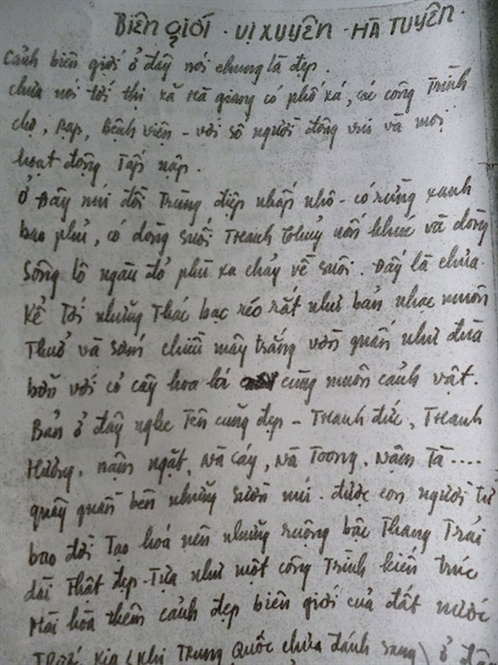 BIÊN GIỚI - VỊ XUYÊN - HÀ TUYÊN.
Cảnh biên giới ở đây nói chung là đẹp.
chưa nói tới thị xã Hà giang có phố xá, các công Trình
chợ, Rạp, Bệnh viện - với số người đông vui và mọi
hoạt động Tấp nập.
ở Đây núi đồi Trùng điệp nhấp nhô - có rừng xanh
bao phủ, có dòng suối Thanh thuỷ uốn khúc và dòng
Sông lô ngầu đỏ phù xa chảy về xuôi. Đấy là chưa
Kể Tới những Thác bạc réo rắt như bản nhạc muôn
Thuở và sớm chiều mây trắng vờn quấn như đùa
bỡn với cỏ cây hoa lá cùng muôn cảnh vật.
Bản ở đây nghe Tên cũng đẹp - Thanh đức, Thanh
Hương, nậm ngặt, Nà Cáy, Nà Toong, Nậm Tà ....
quây quần bên những sườn núi. được con người từ
bao đời Tạo hoá nên những ruộng bậc Thang Trải
dài Thật đẹp - Tựa như một công Trình kiến trúc
Mài hoà thêm cảnh đẹp biên giới của đất nước
Trước kia (khi TRUNG QUỐC chưa đánh sang) ở đây